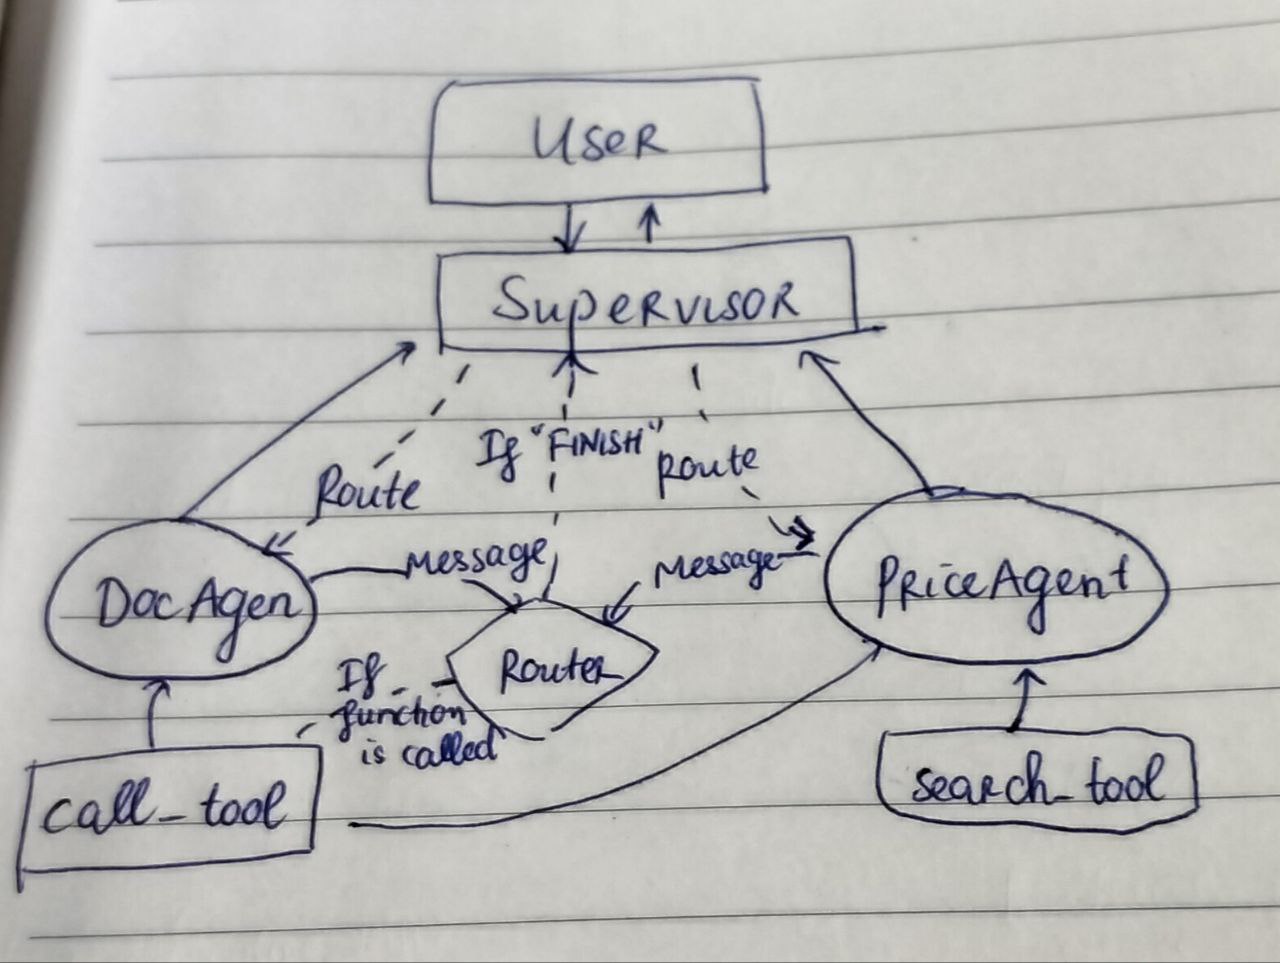 User
Supervisor
If "FINISH"
Route
Route
Message
Message
DocAgen
PriceAgent
Router
If
function
is called
call_tool
search_tool